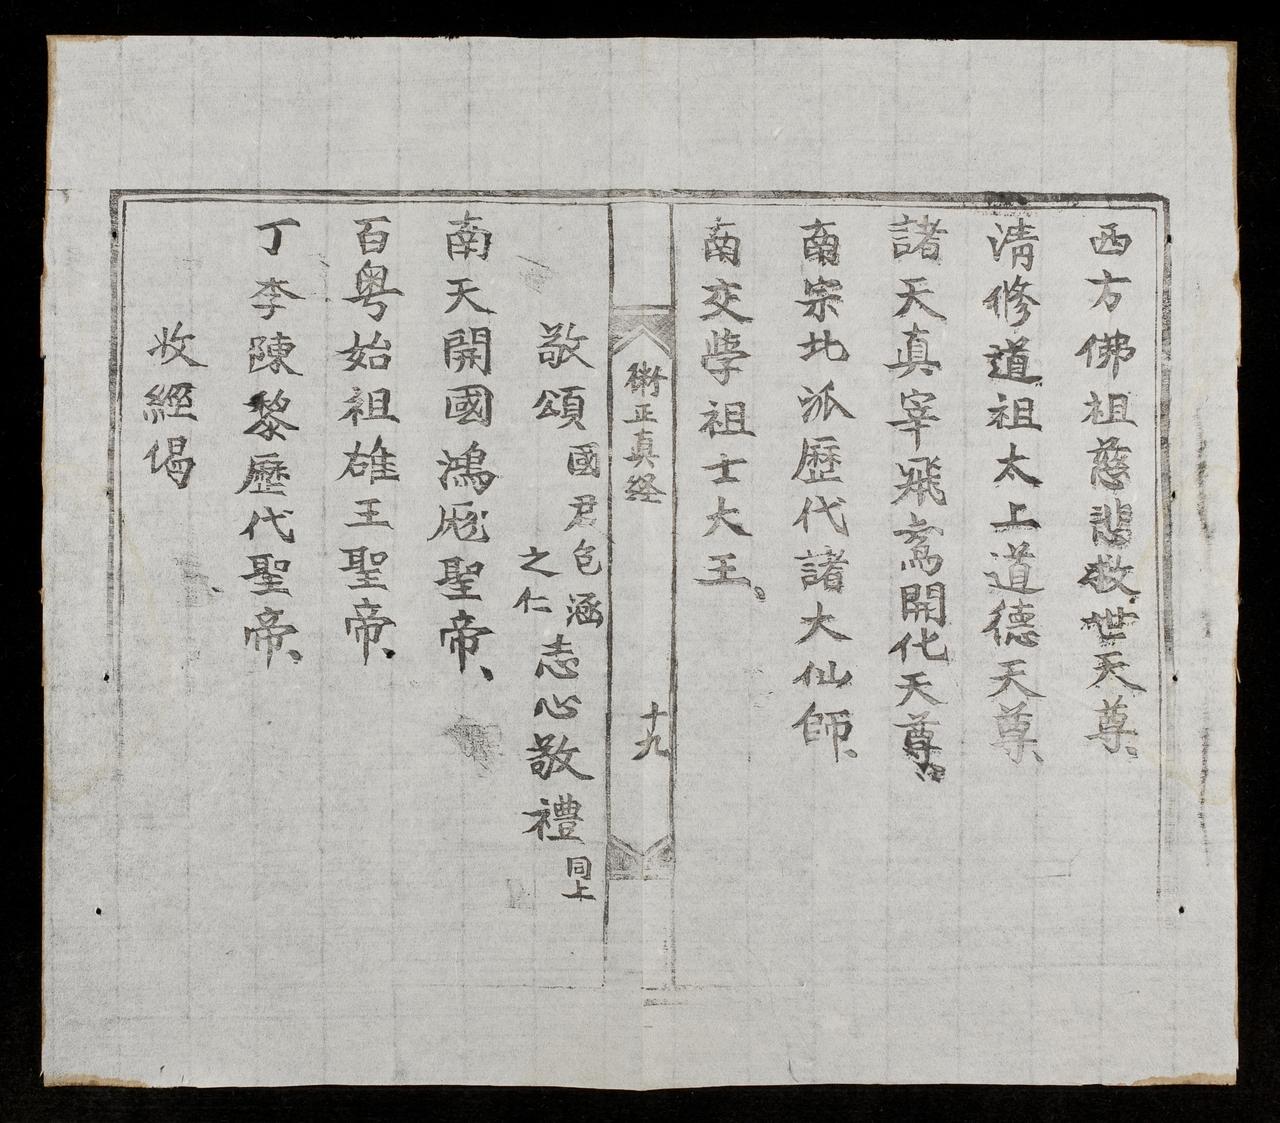 西方佛祖慈悲救世天尊、
清修道祖太上道德天尊、
諸天真宰飛鸞開化天尊、
南宗北派歷代諸大仙師、
南交學祖士大王、
術正真経
十九
敬頌國君包涵之仁志心敬禮同上
南天開國鴻厖聖帝、
百粤始祖雄王聖帝、
丁李陳黎歷代聖帝、
收經偈